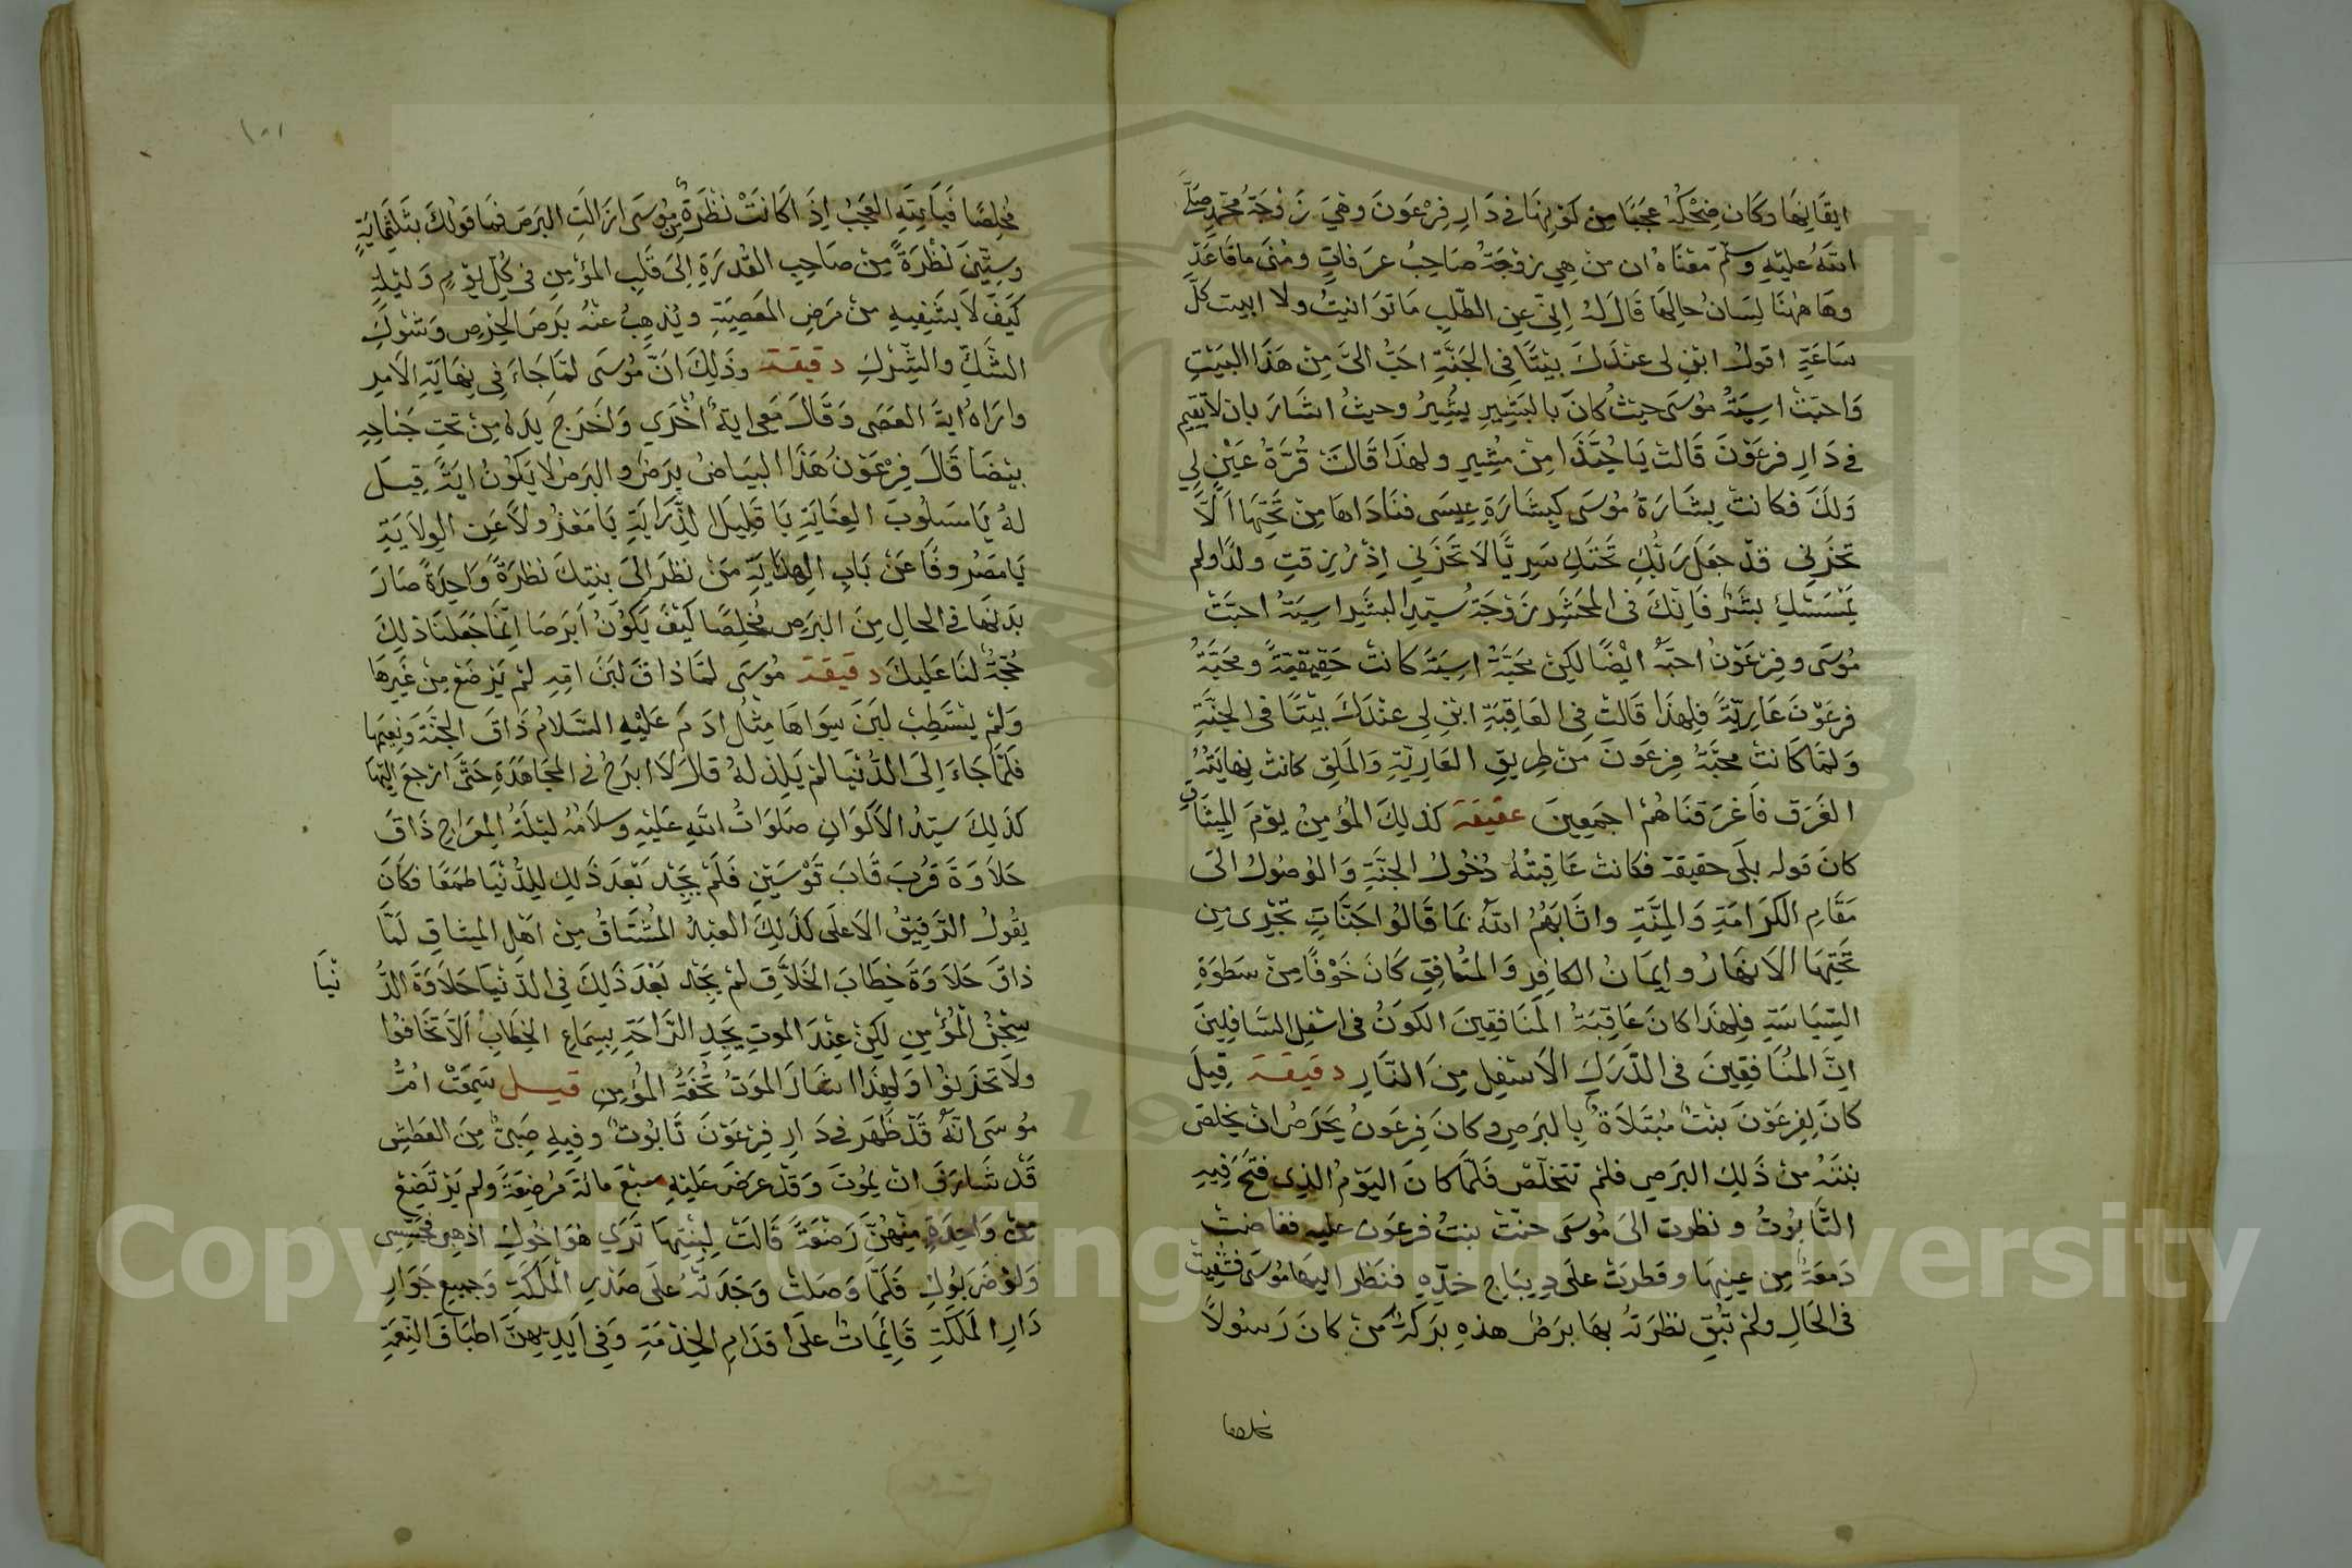 ايقانها وكان ضحكه عجبا من كونها في دار فرعون وهي زوجة محمد صلى
الله عليه وسلم معناه ان من هي زوجة صاحب عرفات ومنى ما قاعد
وهاهنا لسان حالها قال له اني عن الطلب ما توانيت ولا ابيت كل
ساعة اقول ابن لي عندك بيتا في الجنة احب الي من هذا البيت
واحبت اسية موسى حيث كان بالبشير يشير وحيث اشار بان لا تقيم
في دار فرعون قالت يا حبذا من مشير ولهذا قالت قرة عين لي
ولك فكانت بشارة موسى كبشارة عيسى فناداها من تحتها الا
تحزني قد جعل ربك تحتك سريا لا تحزني اذ رزقت ولدا ولم
يمسسك بشر فانك في المحشر زوجة سيد البشر اسية احبت
موسى وفرعون احبه ايضا لكن محبة اسية كانت حقيقية ومحبة
فرعون عارية فلهذا قالت في العاقبة ابن لي عندك بيتا في الجنة
ولما كانت محبة فرعون من طريق العارية والملق كانت نهايته
الغرق فاغرقناهم اجمعين عقيقة كذلك المؤمن يوم الميثاق
كان قوله بلى حقيقة فكانت عاقبته دخول الجنة والوصول الى
مقام الكرامة والمنة واثابهم الله بما قالوا جنات تجرى من
تحتها الانهار وايمان الكافر والمنافق كان خوفا من سطوة
السياسة فلهذا كان عاقبة المنافقين الكون في اسفل السافلين
ان المنافقين في الدرك الاسفل من النار دقيقة قيل
كان لفرعون بنت مبتلاة بالبرص وكان فرعون يحرص ان يخلص
بنته من ذلك البرص فلم تتخلص فلما كان اليوم الذي فتح فيه
التابوت ونظرت الى موسى حنت بنت فرعون عليه ففاضت
دمعة من عينها وقطرت على ديباج خده فنظر اليها موسى فشفيت
في الحال ولم تبق نظرته بها برص هذه بركة من كان رسولا
مخلصا
مخلصا فيا بيته العجب اذا كانت نظرة من موسى ازالت البرص فما قولك بثلثماية
وستين نظرة من صاحب القدرة الى قلب المؤمن في كل يوم وليلة
كيف لا يشفيه من مرض المعصية ويذهب عنه برص الحرص وشوك
الشك والشرك دقيقة وذلك ان موسى لما جاء في نهاية الامر
واراه اية العصى وقال معي اية اخرى واخرج يده من تحت جناحه
بيضا قال فرعون هذا البياض برص والبرص لا يكون اية قيل
له يا مسلوب العناية يا قليل الدراية يا معزولا عن الولاية
يا مصروفا عن باب الهداية من نظر الى بنتك نظرة واحدة صار
بدنها في الحال من البرص مخلصا كيف يكون ابرصا انما جعلنا ذلك
حجة لنا عليك دقيقة موسى لما ذاق لبن امه لم يرضع من غيرها
ولم يستطب لبن سواها مثل ادم عليه السلام ذاق الجنة ونعيمها
فلما جاء الى الدنيا لم يلذ له قال لا ابرح في المجاهدة حتى ارجع اليها
كذلك سيد الاكوان صلوات الله عليه وسلامه ليلة المعراج ذاق
حلاوة قرب قاب قوسين فلم يجد بعد ذلك للدنيا طمعا فكان
يقول الرفيق الاعلى كذلك العبد المشتاق من اهل الميثاق لما
ذاق حلاوة خطاب الخلاق لم يجد بعد ذلك في الدنيا حلاوة الد نيا
سجن المؤمن لكن عند الموت يجد الراحة بسماع الخطاب الا تخافوا
ولا تحزنوا ولهذا اشار الموت تحفة المؤمن قيل سمعت ام
موسى انه قد ظهر في دار فرعون تابوت وفيه صبي من العطش
قد شارف ان يموت وقد عرض عليه سبع مائة مرضعة ولم يرتضع
من واحدة منهن رضعة قالت لبنتها ترى هو اخوك اذهبي فتجسسي
ولو ضربوك فلما وصلت وجدته على صدر الملكة وجميع جوار
دار المملكة قائمات على اقدام الخدمة وفي ايديهن اطباق النعمة
Copyright © King Saud University